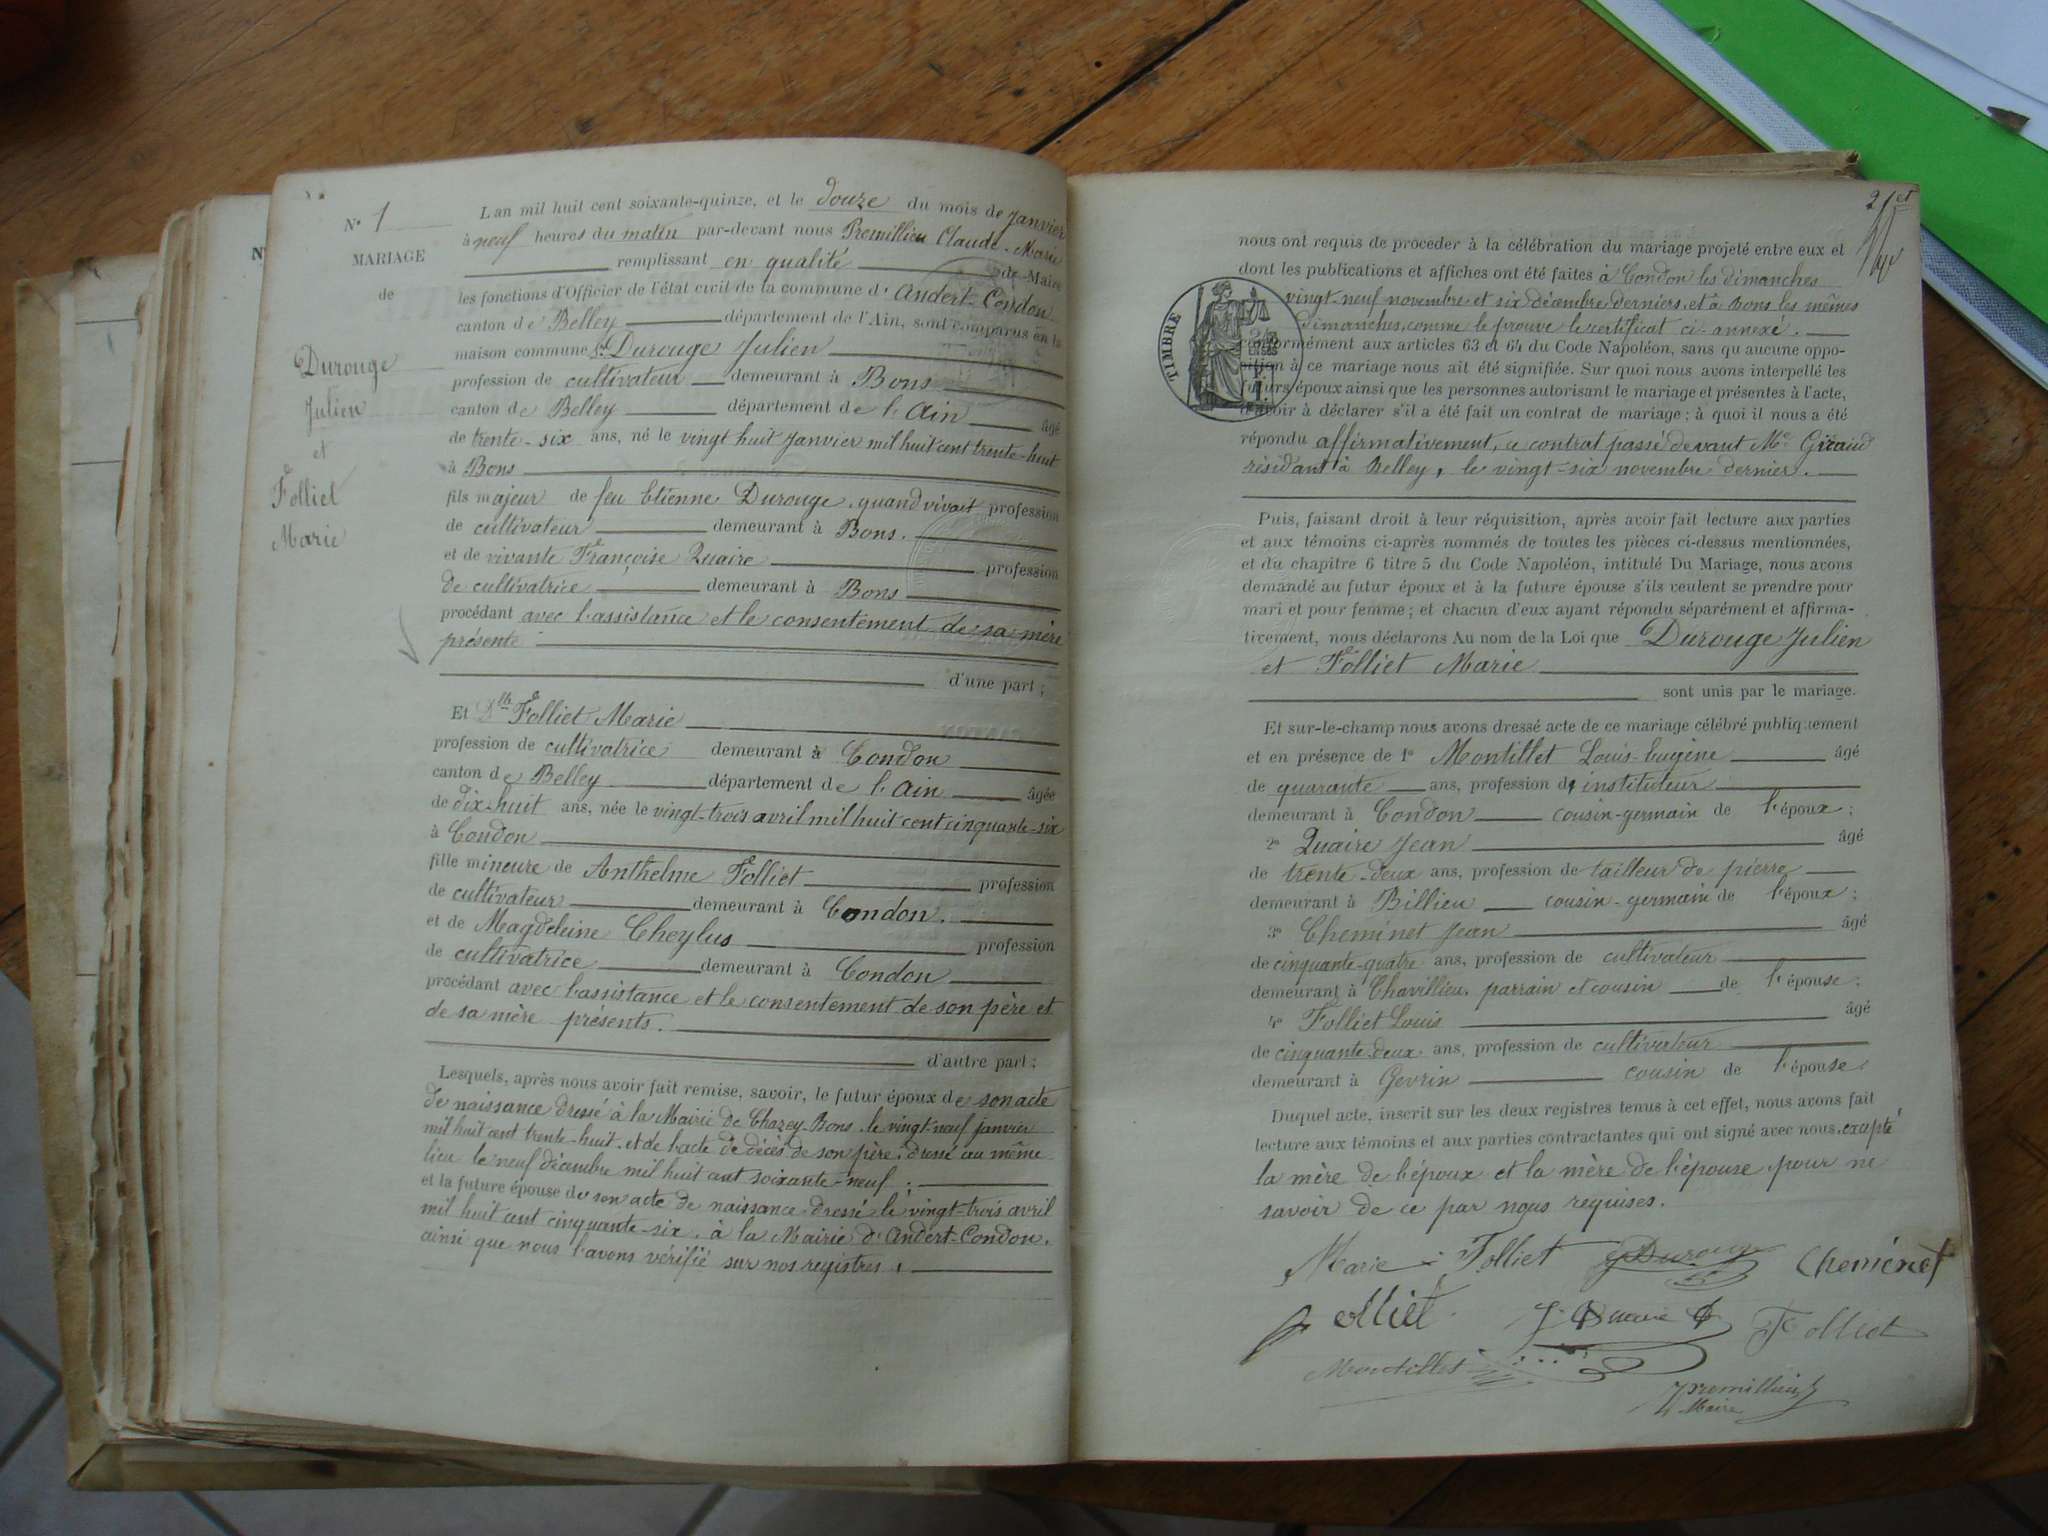 N° 1
MARIAGE
de
Durouge
Julien
et
Folliet
Marie
L'an mil huit cent soixante-quinze, et le douze du mois de Janvier
à neuf heures du matin par-devant nous Premillieu Claude-Marie
remplissant en qualité de Maire
les fonctions d'Officier de l'état civil de la commune d'Andert-Condon
canton de Belley département de l'Ain, sont comparus en la
maison commune Sr Durouge Julien
profession de cultivateur demeurant à Bons
canton de Belley département de l'Ain âgé
de trente-six ans, né le vingt huit Janvier mil huit cent trente-huit
à Bons
fils majeur de feu Etienne Durouge, quand vivait profession
de cultivateur demeurant à Bons.
et de vivante Françoise Quaire profession
de cultivatrice demeurant à Bons
procédant avec l'assistance et le consentement de sa mère
présente
d'une part;
Et Dlle Folliet Marie
profession de cultivatrice demeurant à Condon
canton de Belley département de l'Ain âgée
de dix-huit ans, née le vingt-trois avril mil huit cent cinquante-six
à Condon
fille mineure de Anthelme Folliet profession
de cultivateur demeurant à Condon.
et de Magdeleine Cheylus profession
de cultivatrice demeurant à Condon
procédant avec l'assistance et le consentement de son père et
de sa mère présents.
d'autre part;
Lesquels, après nous avoir fait remise, savoir, le futur époux de son acte
de naissance dressé à la Mairie de Chazey-Bons, le vingt-neuf janvier
mil huit cent trente-huit, et de l'acte de décès de son père, dressé au même
lieu le neuf décembre mil huit cent soixante-neuf;
et la future épouse de son acte de naissance, dressé le vingt-trois avril
mil huit cent cinquante-six, à la Mairie d'Andert-Condon,
ainsi que nous l'avons vérifié sur nos registres,
nous ont requis de proceder à la célébration du mariage projeté entre eux et
dont les publications et affiches ont été faites à Condon les dimanches
vingt-neuf novembre et six décembre derniers, et à Bons les mêmes
dimanches, comme le prouve le certificat ci-annexé.
TIMBRE
conformément aux articles 63 et 64 du Code Napoléon, sans qu'aucune oppo-
sition à ce mariage nous ait été signifiée. Sur quoi nous avons interpellé les
futurs époux ainsi que les personnes autorisant le mariage et présentes à l'acte,
d'avoir à déclarer s'il a été fait un contrat de mariage; à quoi il nous a été
répondu affirmativement, a contrat passé devant Me Giraud
résidant à Belley, le vingt-six novembre dernier.
Puis, faisant droit à leur réquisition, après avoir fait lecture aux parties
et aux témoins ci-après nommés de toutes les pièces ci-dessus mentionnées,
et du chapitre 6 titre 5 du Code Napoléon, intitulé Du Mariage, nous avons
demandé au futur époux et à la future épouse s'ils veulent se prendre pour
mari et pour femme; et chacun d'eux ayant répondu séparément et affirma-
tivement, nous déclarons Au nom de la Loi que Durouge Julien
et Folliet Marie
sont unis par le mariage.
Et sur-le-champ nous avons dressé acte de ce mariage célébré publiquement
et en présence de 1° Montillet Louis-Eugène âgé
de quarante ans, profession d'instituteur
demeurant à Condon cousin-germain de l'époux;
2° Quaire Jean âgé
de trente-deux ans, profession de tailleur de pierre
demeurant à Billieu cousin-germain de l'époux;
3° Cheminet Jean âgé
de cinquante-quatre ans, profession de cultivateur
demeurant à Chavillieu, parrain et cousin de l'épouse;
4° Folliet Louis âgé
de cinquante-deux ans, profession de cultivateur
demeurant à Gevrin cousin de l'épouse.
Duquel acte, inscrit sur les deux registres tenus à cet effet, nous avons fait
lecture aux témoins et aux parties contractantes qui ont signé avec nous, excepté
la mère de l'époux et la mère de l'épouse pour ne
savoir de ce par nous requises.
Marie Folliet J Durouge Cheminet
Folliet J Quaire Folliet
Montillet
Premillieu
Maire